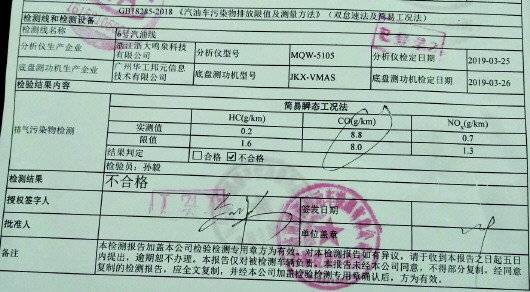 GB18285-2018《汽油车污染物排放限值及测量方法》(双怠速法及简易工况法)
检测线和检测设备
检测线名称 6号汽油线
分析仪生产企业 浙江浙大鸣泉科技有限公司 分析仪型号 MQW-5105 分析仪检定日期 2019-03-25
底盘测功机生产企业 广州华工邦元信息技术有限公司 底盘测功机型号 JKX-VMAS 底盘测功机检定日期 2019-03-26
检验结果内容
简易瞬态工况法
HC(g/km) CO(g/km) NOx(g/km)
排气污染物检测
实测值 0.2 8.8 0.7
限值 1.6 8.0 1.3
结果判定 □合格 ☑不合格
检验员：孙毅
检测结果 不合格
授权签字人 签发日期
批准人 单位盖章
备注
本检测报告加盖本公司检验检测专用章方为有效。对本检测报告如有异议，请于收到本报告之日起五日
内提出，逾期恕不办理。本报告仅对被检测车辆负责。本报告未经本公司同意，不得部分复制，经同意
复制的检测报告，应全文复制，并经本公司加盖检验检测专用章确认后，方为有效。